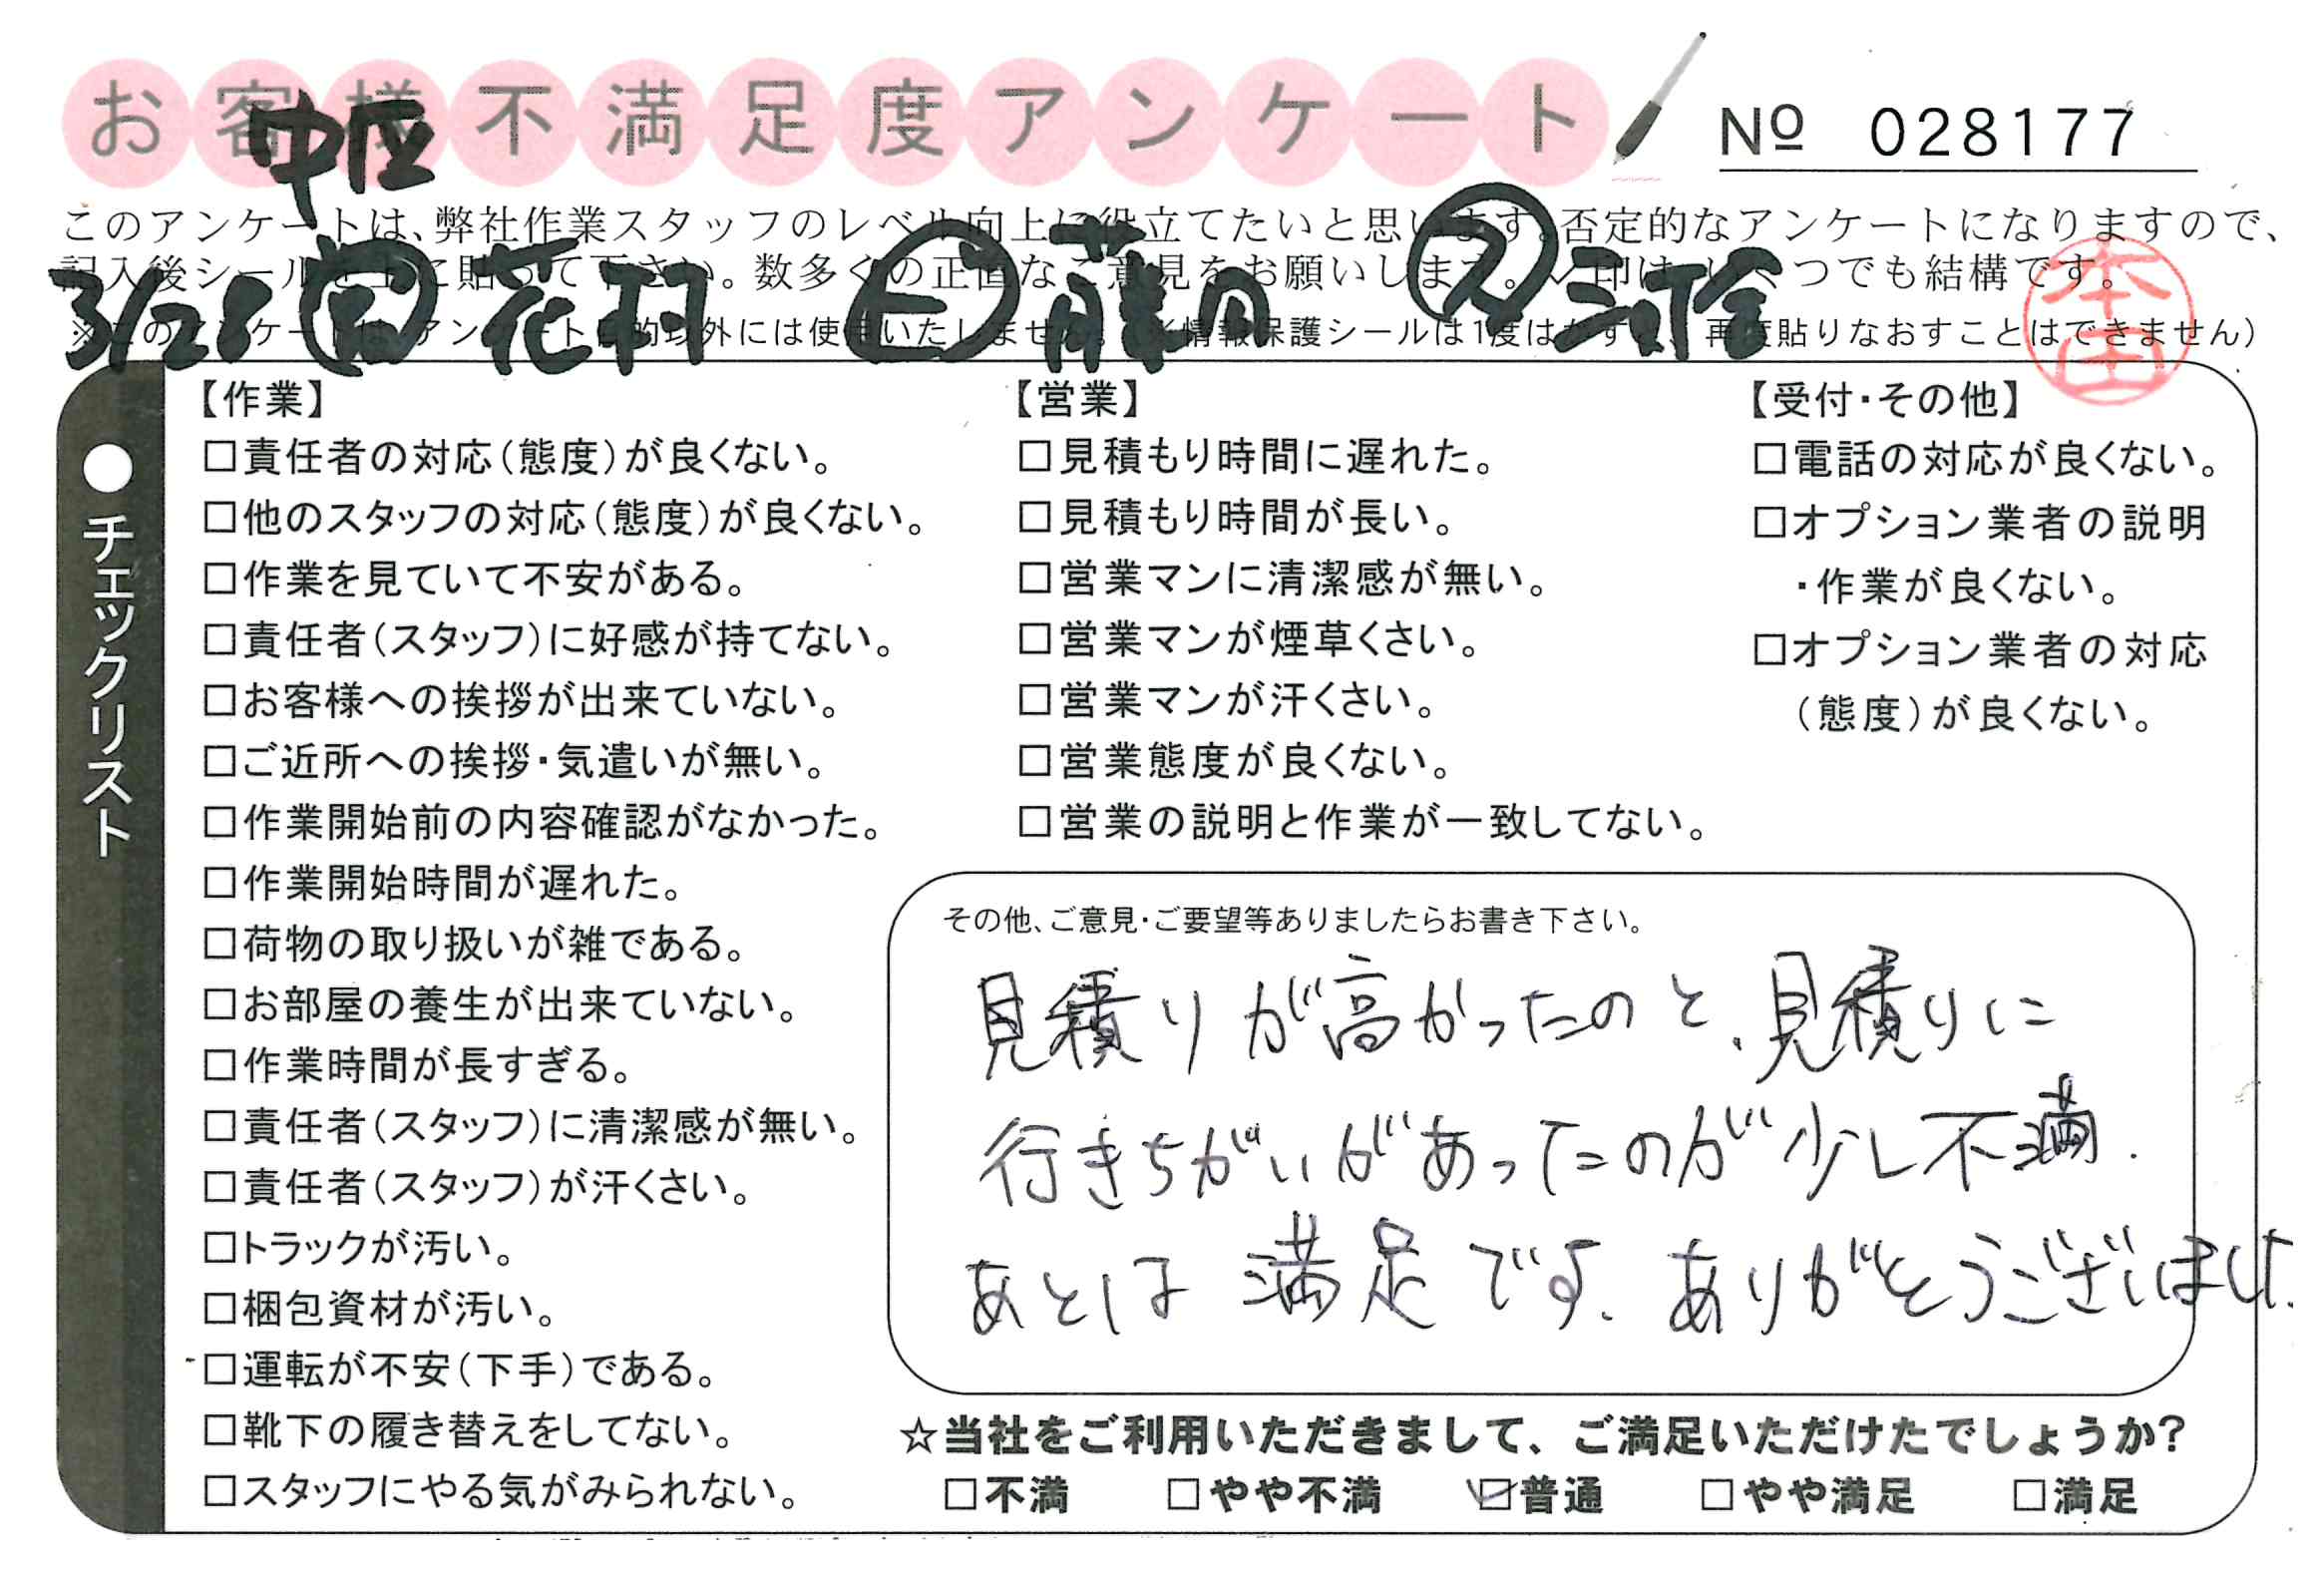 お客様不満足度アンケート
№ 028177
中区
このアンケートは、弊社作業スタッフのレベル向上に役立てたいと思います。否定的なアンケートになりますので、
記入後シールを上に貼って下さい。数多くの正直なご意見をお願いします。✓印は、いくつでも結構です。
3/28 花村 藤乃 ス
※このアンケートは、アンケート目的以外には使用いたしません。(※情報保護シールは1度はがすと、再度貼りなおすことはできません)
本田
●チェックリスト
【作業】
□責任者の対応(態度)が良くない。
□他のスタッフの対応(態度)が良くない。
□作業を見ていて不安がある。
□責任者(スタッフ)に好感が持てない。
□お客様への挨拶が出来ていない。
□ご近所への挨拶・気遣いが無い。
□作業開始前の内容確認がなかった。
□作業開始時間が遅れた。
□荷物の取り扱いが雑である。
□お部屋の養生が出来ていない。
□作業時間が長すぎる。
□責任者(スタッフ)に清潔感が無い。
□責任者(スタッフ)が汗くさい。
□トラックが汚い。
□梱包資材が汚い。
□運転が不安(下手)である。
□靴下の履き替えをしてない。
□スタッフにやる気がみられない。
【営業】
□見積もり時間に遅れた。
□見積もり時間が長い。
□営業マンに清潔感が無い。
□営業マンが煙草くさい。
□営業マンが汗くさい。
□営業態度が良くない。
□営業の説明と作業が一致してない。
【受付・その他】
□電話の対応が良くない。
□オプション業者の説明
・作業が良くない。
□オプション業者の対応
(態度)が良くない。
その他、ご意見・ご要望等ありましたらお書き下さい。
見積りが高かったのと、見積りに
行きちがいがあったのが少し不満.
あとは満足です. ありがとうございました.
☆当社をご利用いただきまして、ご満足いただけたでしょうか?
□不満 □やや不満 ☑普通 □やや満足 □満足